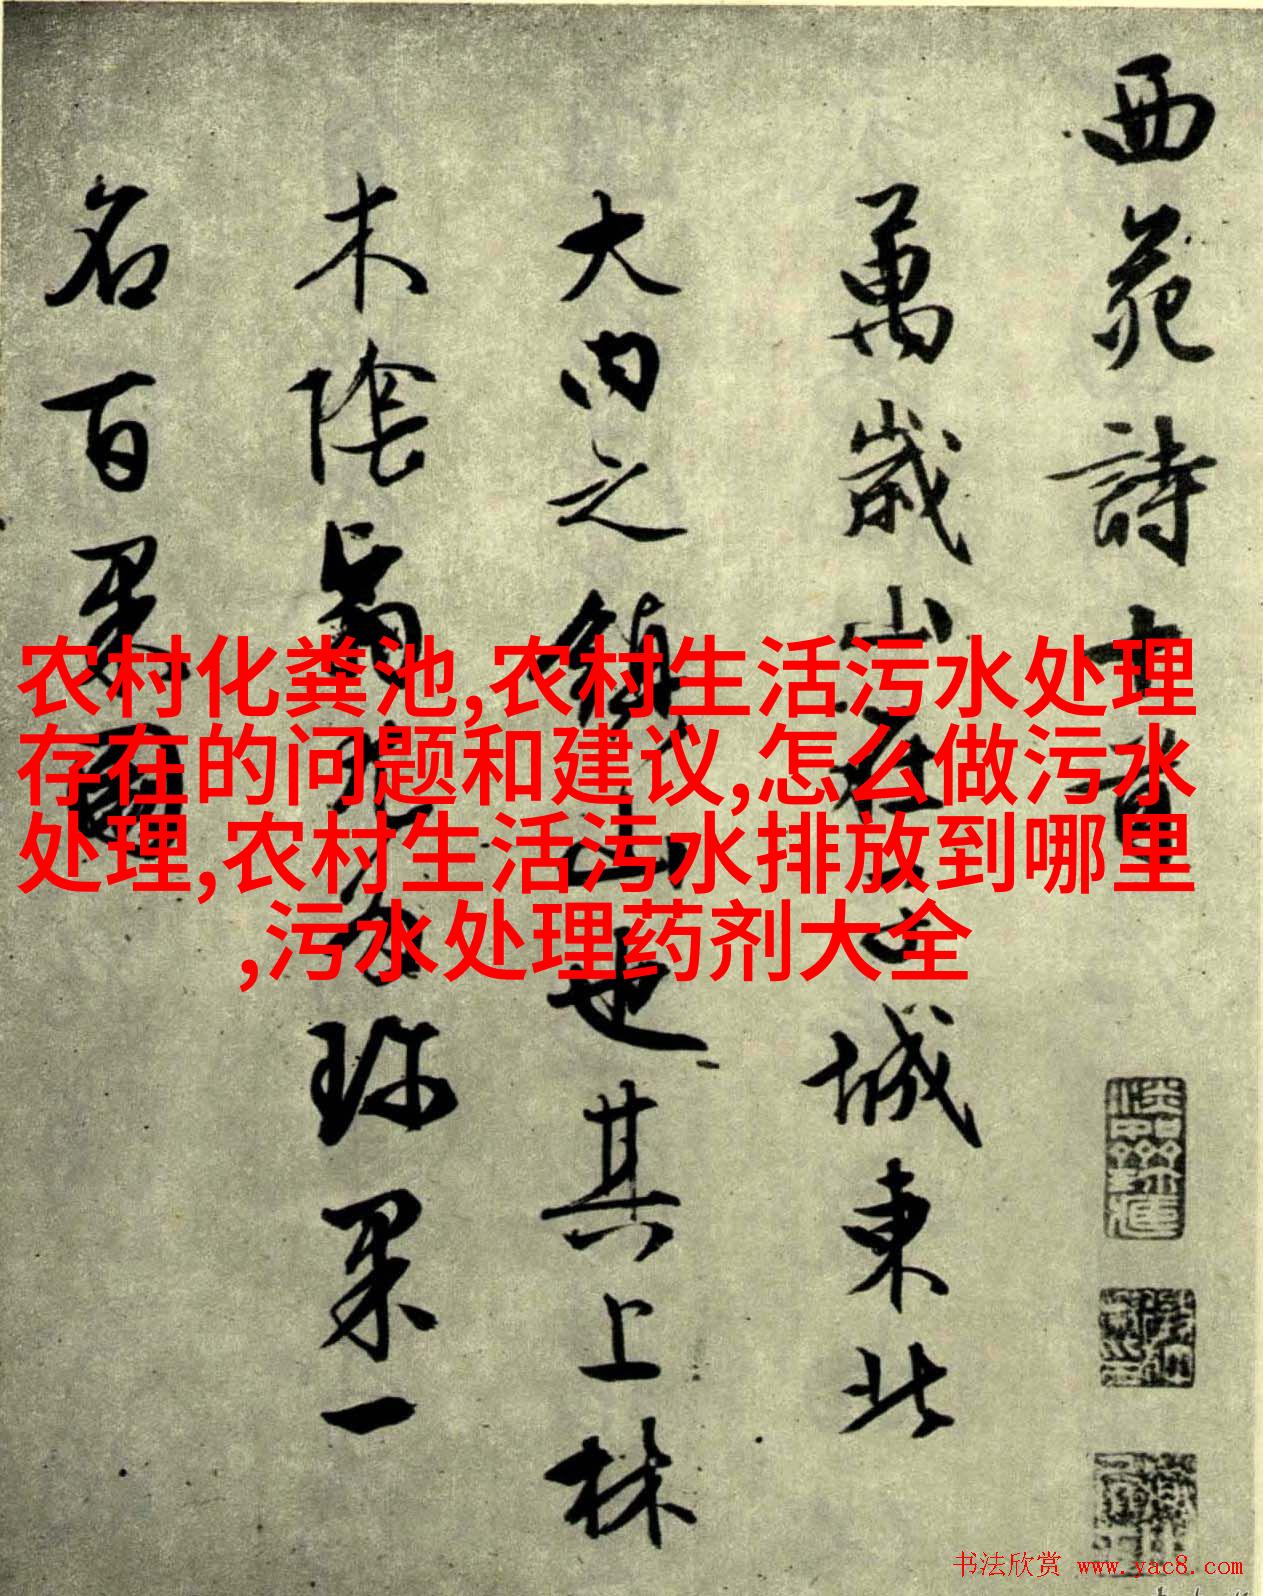 西苑詩十首
萬歲山在子城東北
大內之鎮山也其上林
木陰翳
珎果一
名百果園
农村化粪池,农村生活污水处理
存在的问题和建议,怎么做污水
处理,农村生活污水排放到哪里
,污水处理药剂大全
书法欣赏 www.yac8.com